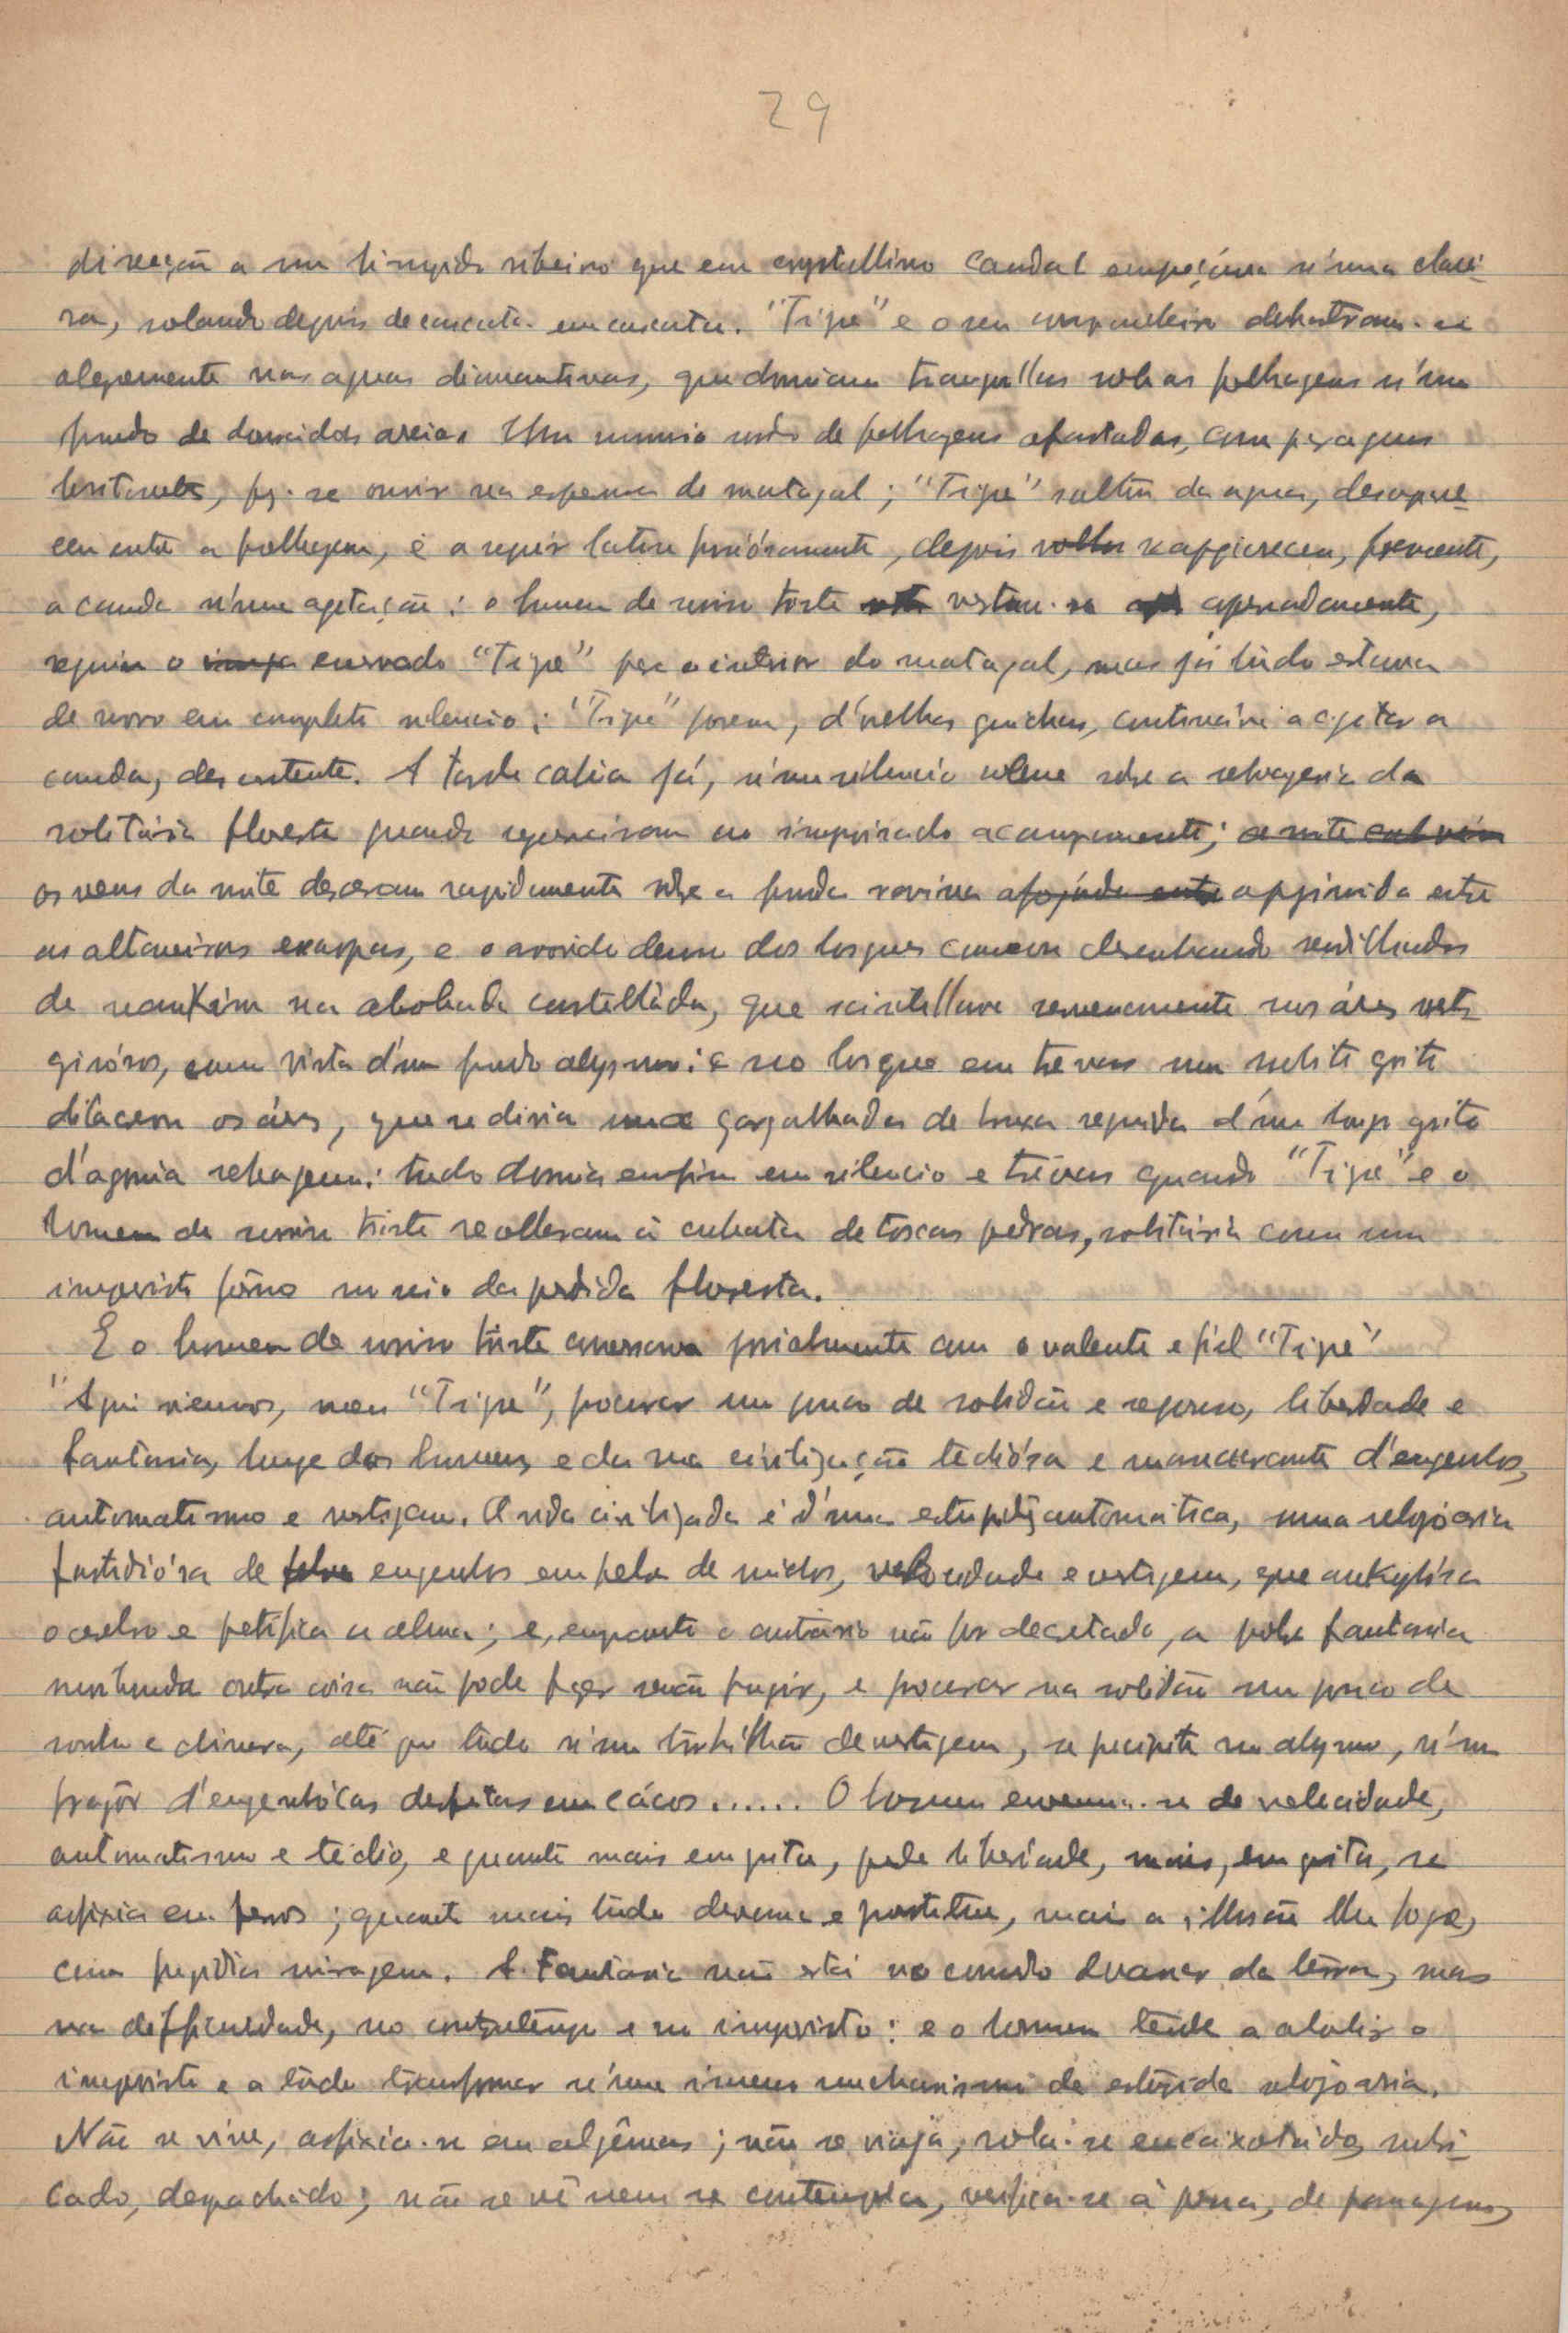 29
direcção a um limpido ribeiro que em crystallino caudal empoçáva n'uma clarei-
ra, rolando depois de cascata em cascata. "Tigre" e o seu companheiro
alegremente nas aguas diamantinas, que dormiam tranquillas sob as folhagens n'um
fundo de douradas areias. Um rumor de folhagens afastadas, como por aguas
fez-se ouvir na espessura do matagal; "Tigre" saltou da agua, desappare-
ceu entre a folhagem, e a seguir lateu furiósamente, depois reappareceu, fremente,
a cauda n'uma agitação: o homem de sorriso triste vestiu-se apressadamente,
seguiu o enervado "Tigre" para o interior do matagal, mas já tudo estava
de novo em completo silencio; "Tigre" porem, d'orelhas guichas, continuáva a agitar a
cauda, descontente. A tarde cahia já, n'um silencio solene sobre a selvageria da
solitária floresta quando regressaram ao improvisado acampamento;
os veus da noite desceram rapidamente sobre a funda ravina opprimida entre
as altaneiras escarpas, e o arvoredo denso dos bosques desenhando rendilhados
de nankim na abobada constelláda, que scintillava serenamente nos áres verti-
ginósos, como vista d'um fundo abysmo: e no bosque em trevas um subito grito
dilacera os áres, que se diria uma gargalhada de bruxa seguida d'um longo grito
d'agonia selvagem: tudo dormia enfim em silencio e trévas quando "Tigre" e o
homem de sorriso triste recolheram á cubata de toscas pedras, solitária como um
imprevisto fôrno no seio da perdida floresta.
E o homem de sorriso triste conversava jovialmente com o valente e fiel "Tigre"
"Aqui viemos, meu "Tigre", procurar um pouco de solidão e repouso, liberdade e
fantasia, longe dos homens e da sua civilização tediósa e d'engenhos,
automatismo e vertigem. A vida civilizada é d'uma estupidez automática, uma relojoaria
fastidiósa de engenhos em pelo de ruidos, velocidade e vertigem, que ankylósa
o cerebro e petrifica a alma; e, enquanto o contrário não fôr decretado, a pobre fantasia
nenhuma outra coisa não pode fazer senão fugir, e procurar na solidão um pouco de
sonho e chimera, até que tudo n'um turbilhão de vertigem, se precipite no abysmo, n'um
fragôr d'engenhócas desfeitas em cácos...... O homem envenena-se de velocidade,
automatismo e tédio, e quanto mais em grita, pede liberdade, mais, em grita, se
asfixia em ferros; quanto mais tudo devassa e prostitue, mais a illusão lhe foge,
como fugidia miragem. A Fantasia não está no comodo devassar da terra, mas
na difficuldade, no contratempo e no imprevisto: e o homem tende a abolir o
imprevisto e a tudo transformar n'um imenso mechanismo de estupida relojoaria.
Não se vive, asfixia-se em algêmas; não se viaja, rola-se encaixotádo, rubri-
cado, despachádo; não se vê nem se contempla, verifica-se á pressa, de passagem,